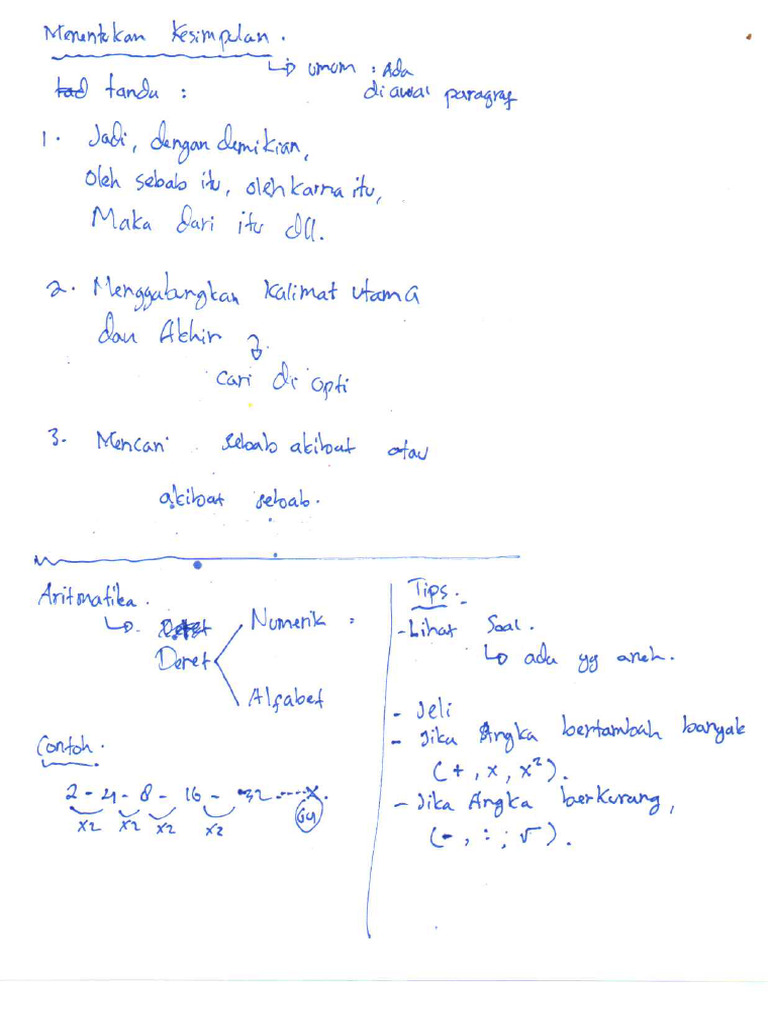 Menentukan Kesimpulan.
↳ umum : Ada
diawal paragraf
tanda :
1. Jadi, dengan demikian,
oleh sebab itu, oleh karna itu,
Maka dari itu dll.
2. Menggabungkan kalimat utama
dan Akhir
cari di opti
3. Mencari sebab akibat atau
akibat sebab.
Aritmatika.
↳ Deret
Numerik :
Alfabet
Contoh.
2 - 4 - 8 - 16 - 32 ---- X.
x2 x2 x2 x2 64
Tips.
- Lihat Soal.
↳ ada yg aneh.
- Jeli
- Jika Angka bertambah banyak
(+, x, x²).
- Jika Angka berkurang,
(-, :, √).